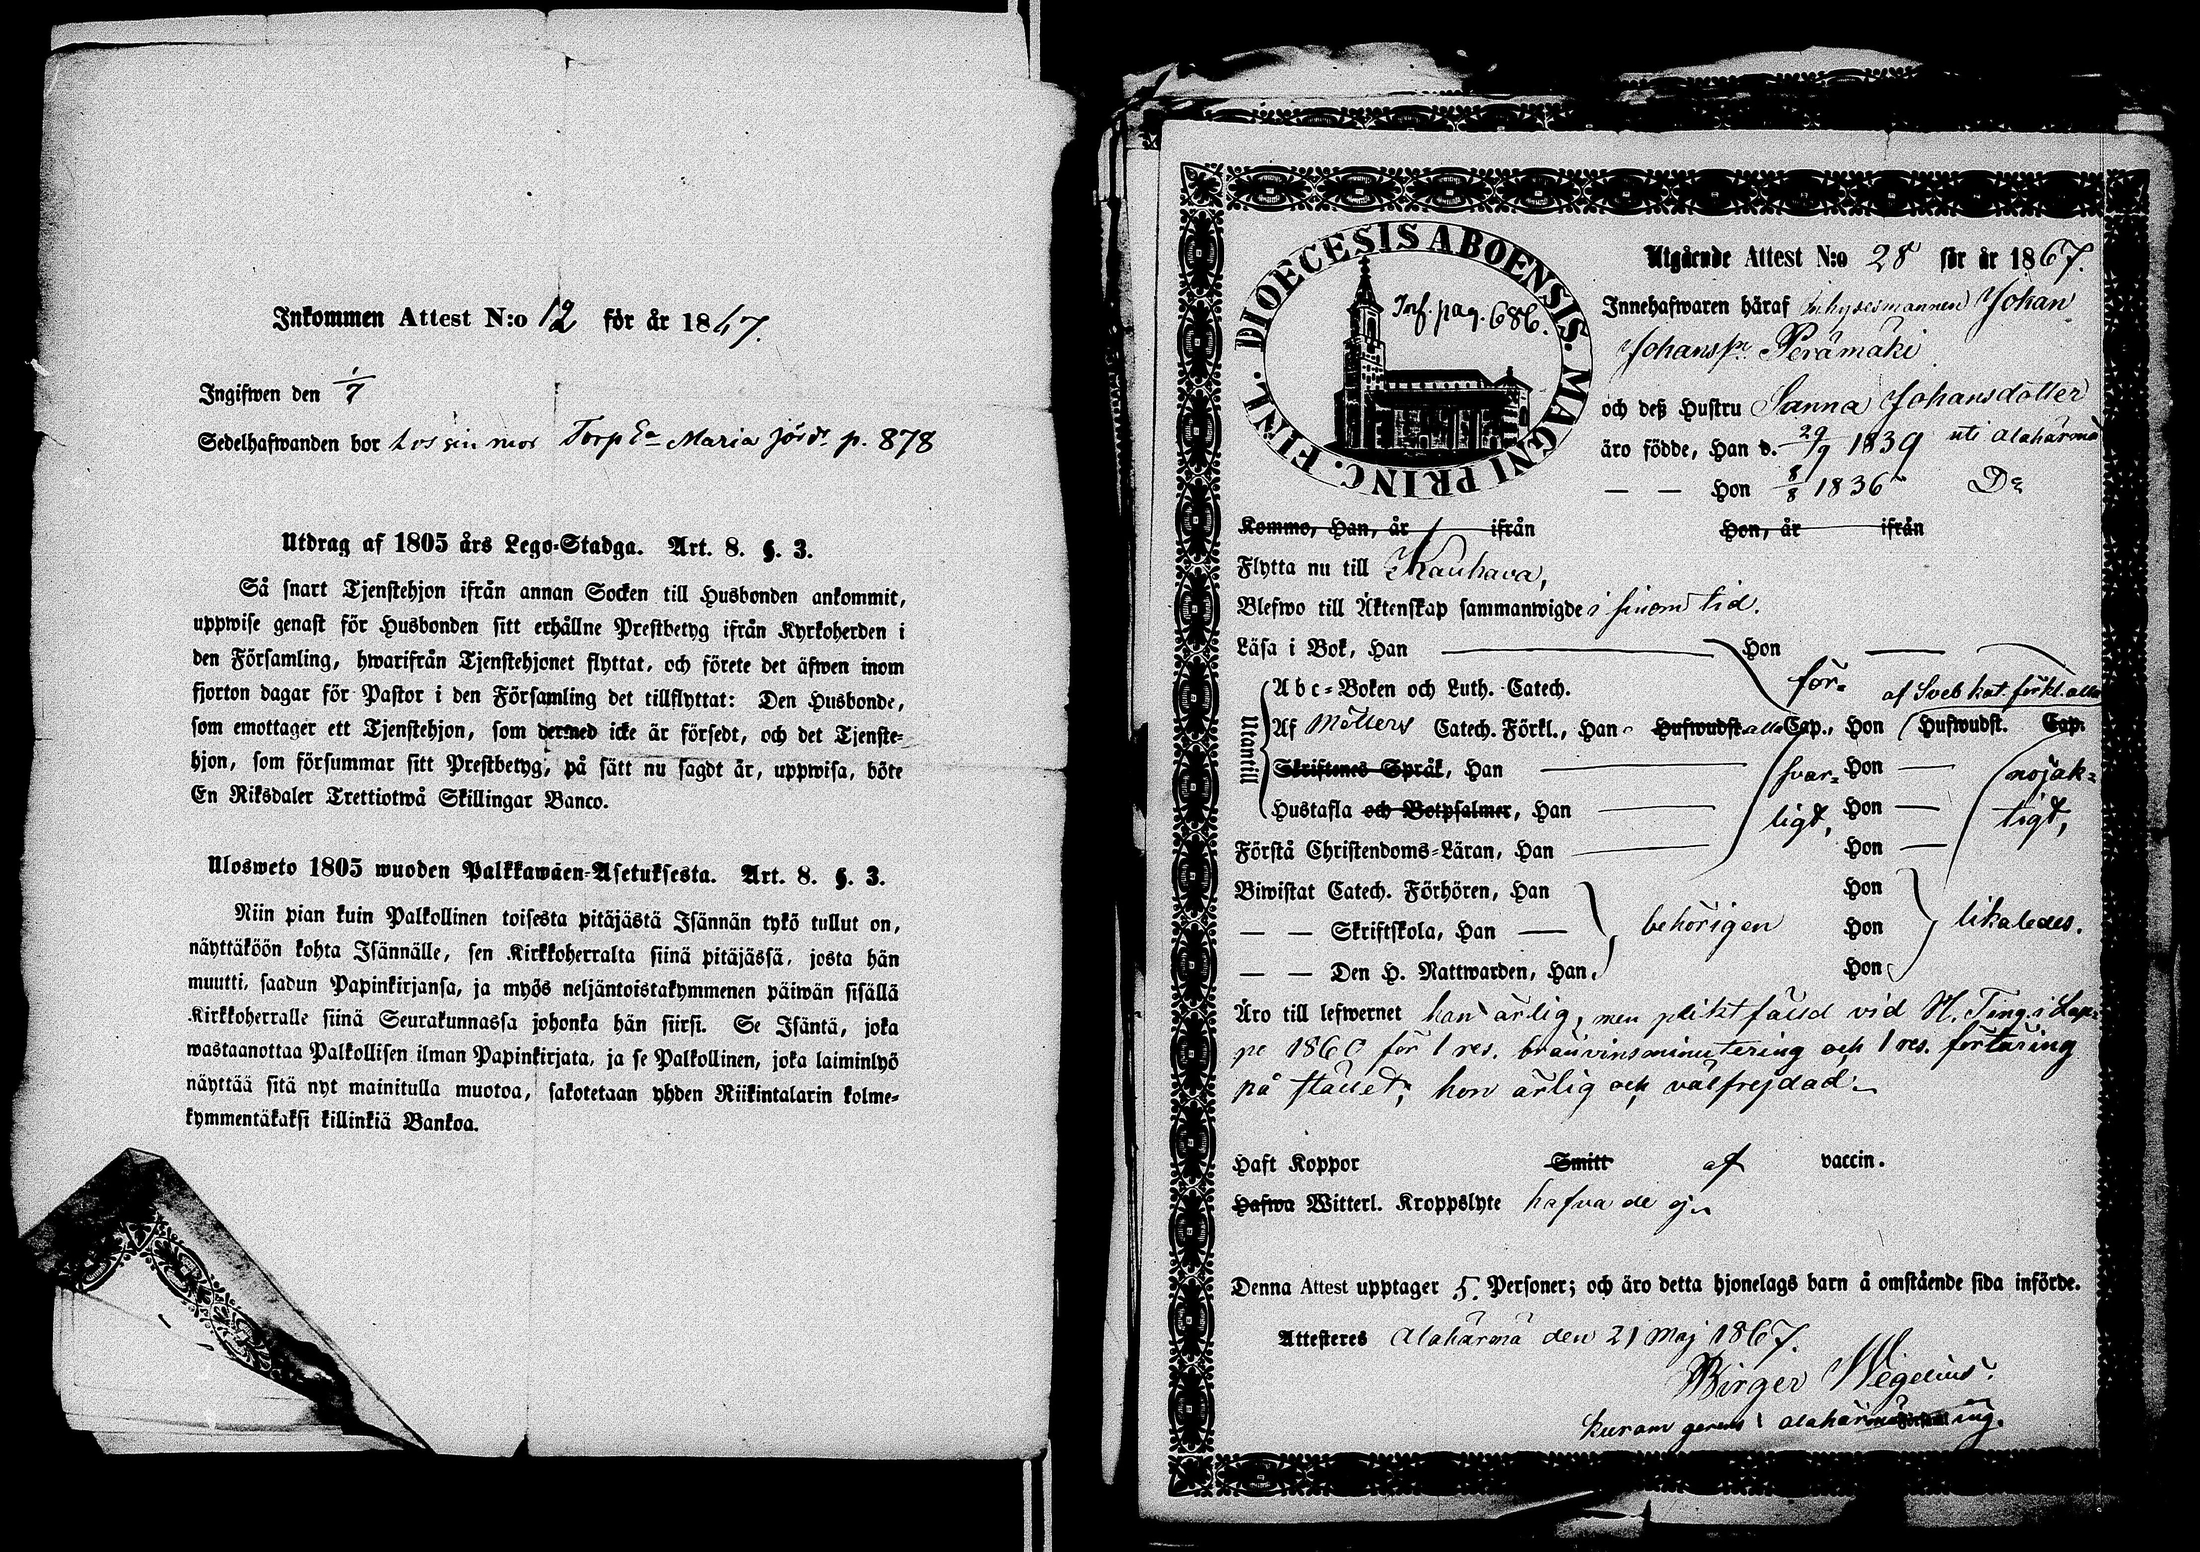 Inkommen Attest N:o 12 för år 1867.
Ingifwen den 1/7
Sedelhafwanden bor hos sin mor Torp Ea Maria p. 878
Utdrag af 1805 års Lego-Stadga. Art. 8. §. 3.
Så snart Tjenstehjon ifrån annan Socken till Husbonden ankommit,
uppwise genast för Husbonden sitt erhållne Prestbetyg ifrån Kyrkoherden i
den Församling, hwarifrån Tjenstehjonet flyttat, och förete det äfwen inom
fjorton dagar för Pastor i den Församling det tillflyttat: Den Husbonde,
som emottager ett Tjenstehjon, som dermed icke är försedt, och det Tjenste-
hjon, som försummar sitt Prestbetyg, på sätt nu sagdt är, uppwisa, böte
En Riksdaler Trettiotwå Skillingar Banco.
Ulosweto 1805 wuoden Palkkawäen-Asetuksesta. Art. 8. §. 3.
Niin pian kuin Palkollinen toisesta pitäjästä Isännän tykö tullut on,
näyttäköön kohta Isännälle, sen Kirkkoherralta siinä pitäjässä, josta hän
muutti, saadun Papinkirjansa, ja myös neljäntoistakymmenen päiwän sisällä
Kirkkoherralle siinä Seurakunnassa johonka hän siirsi. Se Isäntä, joka
wastaanottaa Palkollisen ilman Papinkirjata, ja se Palkollinen, joka laiminlyö
näyttää sitä nyt mainitulla muotoa, sakotetaan yhden Riikintalarin kolme-
kymmentäkaksi killinkiä Bankoa.
DIOECESIS ABOENSIS. MAGNI PRINC. FINL.
Inf. pag. 686.
Utgående Attest N:o 28 för år 1867.
Innehafwaren häraf Inhysesmannen Johan
Johanss. Perämäki
och deß Hustru Sanna Johansdotter
äro födde, Han d. 29/9 1839 uti Alahärmä
— — Hon 8/8 1836 Do
Kommo, Han, år ifrån Hon, år ifrån
Flytta nu till Kauhava,
Blefwo till Äktenskap sammanwigde i sinom tid.
Läsa i Bok, Han Hon
Abc-Boken och Luth. Catech. för- af Sveb. kat. förkl. alla
Utantill
Af Möllers Catech. Förkl., Han Hufwudst. alla Cap., Hon Hufwudst. Cap.
Skriftenes Språk, Han svar- Hon nöjak-
Hustafla och Botpsalmer, Han ligt, Hon tigt,
Förstå Christendoms-Läran, Han Hon
Biwistat Catech. Förhören, Han Hon
— — Skriftskola, Han behörigen Hon likaledes.
— — Den H. Nattwarden, Han Hon
Äro till lefwernet han ärlig, men pliktfälld vid H. Ting i Lap-
po 1860 för 1 res. bränvinsminutering och 1 res. förtäring
på stället; hon ärlig och välfrejdad.
Haft Koppor Smitt af vaccin.
Hafwa Witterl. Kroppslyte hafva de ej.
Denna Attest upptager 5. Personer; och äro detta hjonelags barn å omstående sida införde.
Attesteres Alahärmä den 21 Maj 1867.
Birger Wegelius.
kuram gerens i Alahärmä